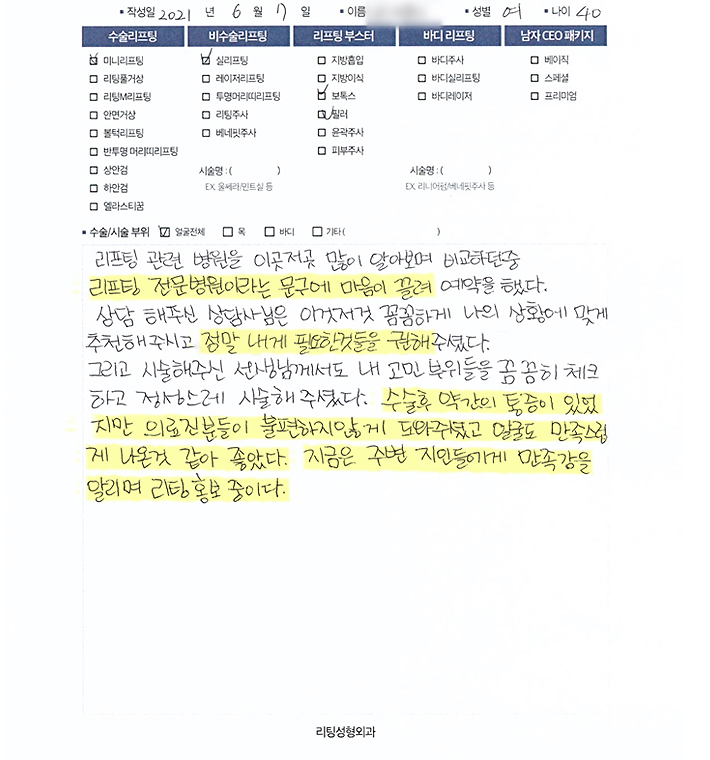 ▪ 작성일 2021 년 6 월 17 일 ▪ 이름 ▪ 성별 여 ▪ 나이 40
수술리프팅 비수술리프팅 리프팅 부스터 바디 리프팅 남자 CEO 패키지
미니리프팅 실리프팅 지방흡입 바디주사 베이직
리팅풀거상 레이저리프팅 지방이식 바디실리프팅 스페셜
리팅M리프팅 투명머리띠리프팅 보톡스 바디레이저 프리미엄
안면거상 리팅주사 필러
볼턱리프팅 베네핏주사 윤곽주사
반투명 머리띠리프팅 피부주사
상안검 시술명 : ( ) 시술명 : ( )
하안검 EX. 울쎄라/민트실 등 EX. 리니어펌/베네핏주사 등
엘라스티꿈
▪ 수술/시술 부위 얼굴전체 목 바디 기타 ( )
리프팅 관련 병원을 이곳저곳 많이 알아보며 비교하던중
리프팅 전문병원이라는 문구에 마음이 끌려 예약을 했다.
상담 해주신 상담사님은 이것저것 꼼꼼하게 나의 상황에 맞게
추천해주시고 정말 내게 필요한것들을 권해주셨다.
그리고 시술해주신 선생님께서도 내 고민 부위들을 꼼꼼히 체크
하고 정성스레 시술해주셨다. 수술후 약간의 통증이 있었
지만 의료진분들이 불편하지않게 도와주셨고 얼굴도 만족스럽
게 나온것 같아 좋았다. 지금은 주변 지인들에게 만족감을
알리며 리팅 홍보 중이다.
리팅성형외과